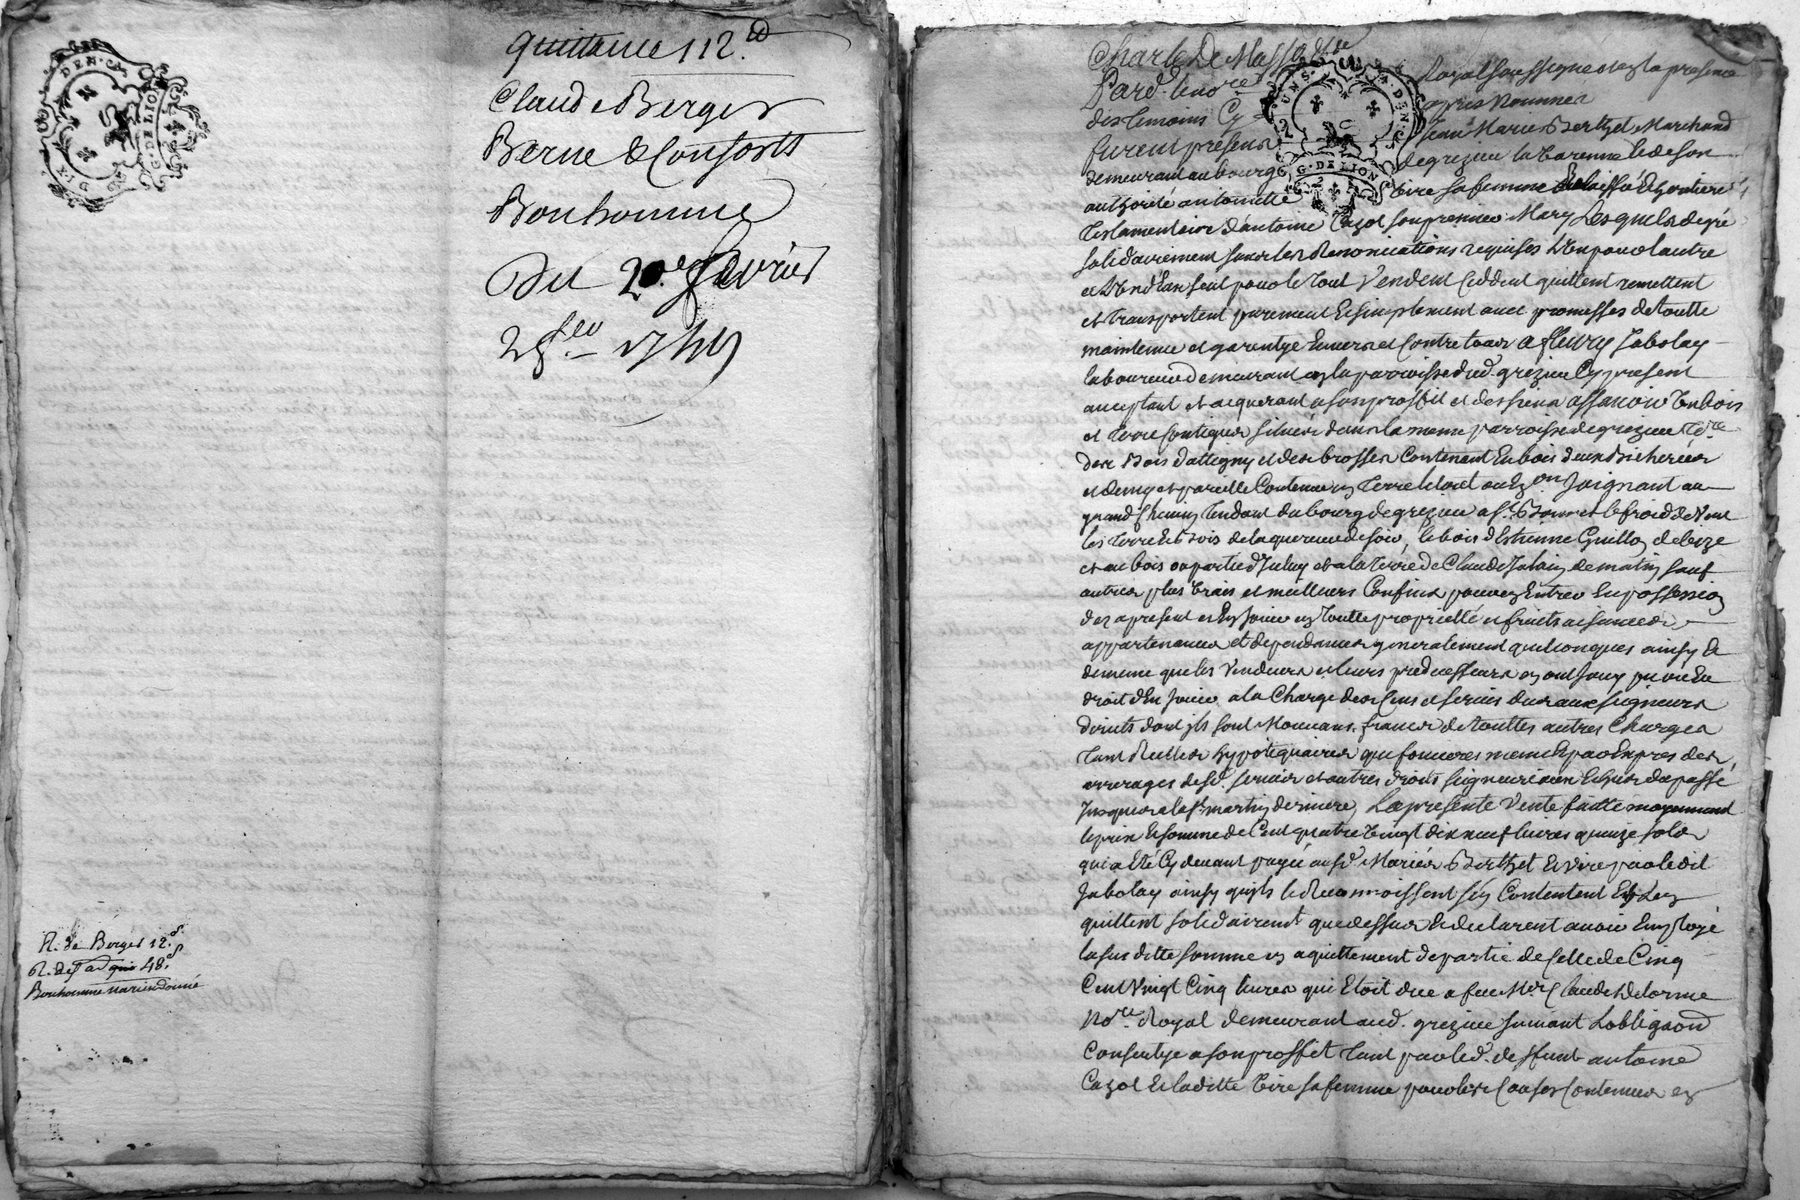 DIX DEN. CAH
G. DE LION
quittance 112.
Claude Berger
Berne & Consorts
Bonhomme
Du 20e fevrier
1749
R. de Berger 12.s
48.s
Bonhomme n'a rien donné
Par d. le no.re
Royal soussigné et en la presence
des temoins cy
apres nommes
furent presens
Jean Marie Berthet Marchand
demeurant au bourg
de grezieu la varenne et de son
G. DE LION
authorité antoinette
sa femme
testamentaire d'antoine Cazot son premier Mary lesquels de gré
solidairement sous les Renonciations requises L'un pour l'autre
et L'un d'Eux seul pour le tout Vendent ceddent quittent remettent
et transportent purement et simplement avec promesses de toutte
maintenue et garentye Envers et contre tous a fleury Jabolay
laboureur demeurant en la parroisse dud. grezieu Cy present
acceptant et acquerant a son proffit et des siens assavoir Un bois
et terre contigus situés dans la meme parroisse de grezieu
des Bois d'attigny et des brosses Contenant En bois deux bicherées
et demy et pareille Contenue en terre le tout ou En.on Joignant au
grand chemin tendant du bourg de grezieu a
les terre et bois de la de soir, le bois d'Estienne Guillon de bize
et au bois et a la terre de Claude de matin sauf
autres plus vrais et meilleurs Confins pouvoir Entrer En possession
dez apresent et En Jouir en toutte proprietté et fruits aisances
appartenances et dependances generalement quelconques ainsy et
de meme que les Vendeurs et leurs predecesseurs en ont Jouy pu ou Eu
droit d'En Jouir a la Charge des Cens et servis dus aux seigneurs
directs dont ils sont Mouvans. francs de touttes autres Charges
tant Reelles hypotequaires que foncieres meme des
arrerages desd. servis et autres droits seigneuriaux Echus du passé
Jusques a la St martin derniere, La presente Vente faitte moyennant
le prix Et somme de Cent quatre Vingt dix neuf livres quinze sols
qui a Eté Cy devant payée auxd. Mariés Berthet Et Vire par ledit
Jabolay ainsy qu'ils le Reconnoissent s'en Contentent Et L'en
quittent solidairem.t que dessus Et declarent avoir Employé
la susditte somme en aquittement de partie de Celle de Cinq
Cent Vingt Cinq livres qui Etoit due a feu M.e Claude Delorme
No.re Royal demeurant aud. grezieu suivant L'obligaon
Consentye a son proffit tant par led. deffunt antoine
Cazot Et laditte Vire sa femme pour les Causes Contenues en